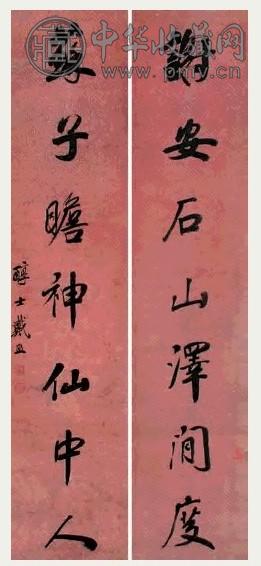 中华收藏网
www.pmv.cn
謝安石山澤間度
蘇子瞻神仙中人
醇士戴熙